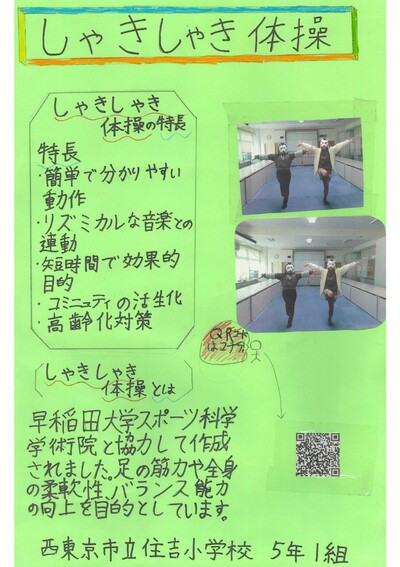 しゃきしゃき体操
しゃきしゃき
体操の特長
特長
・簡単で分かりやすい
動作
・リズミカルな音楽との
連動
・短時間で効果的
目的
・コミニュティの活生化
・高齢化対策
QRコード
はコチラ
しゃきしゃき
体操とは
早稲田大学スポーツ科学
学術院と協力して作成
されました。足の筋力や全身
の柔軟性、バランス能力
の向上を目的としています。
西東京市立住吉小学校 5年1組